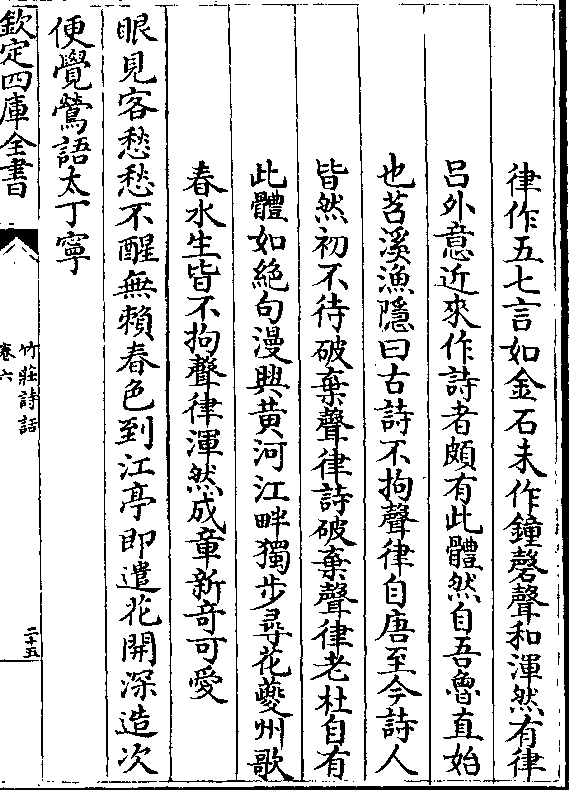 律作五七言如金石未作鐘磬聲和渾然有律
呂外意近來作詩者頗有此體然自吾魯直始
也苕溪漁隱曰古詩不拘聲律自唐至今詩人
皆然初不待破棄聲律詩破棄聲律老杜自有
此體如絕句漫興黃河江畔獨步尋花夔州歌
春水生皆不拘聲律渾然成章新竒可愛
眼見客愁愁不醒無賴春色到江亭即遣花開深造次
便覺鶯語太丁寧
欽定四庫全書
竹莊詩話
卷六
二十五